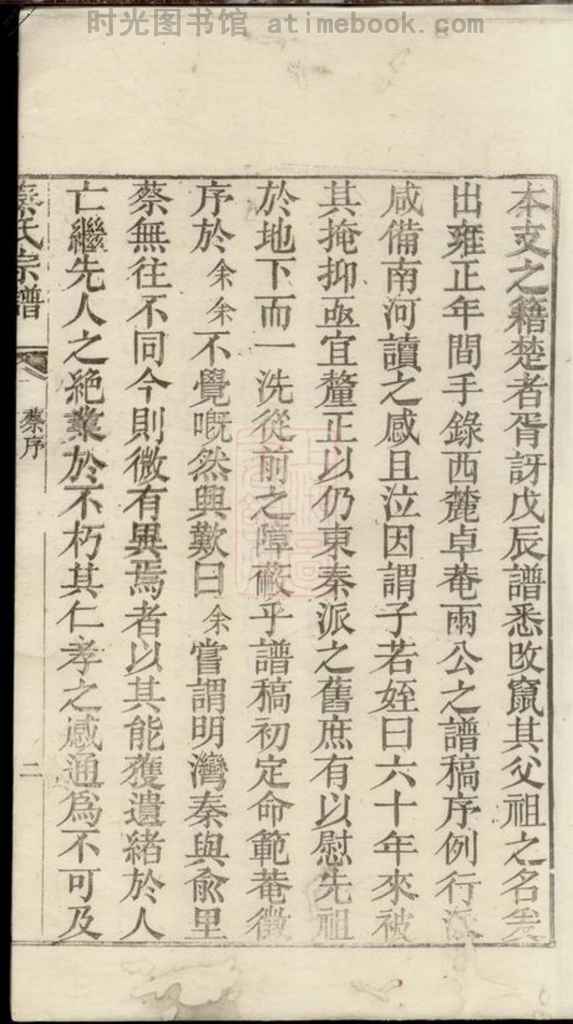 时光图书馆 atimebook.com
本支之籍楚者胥訝戊辰譜悉改竄其父祖之名爰
出雍正年間手錄西麓卓菴兩公之譜稿序例行派
咸備南河讀之感且泣因謂子若姪曰六十年來被
其掩抑亟宜釐正以仍東秦派之舊庶有以慰先祖
於地下而一洗從前之障蔽乎譜稿初定命範菴徵
序於余余不覺嘅然興歎曰余嘗謂明灣秦與兪里
蔡無往不同今則微有異焉者以其能獲遺緒於人
亡繼先人之絶業於不朽其仁孝之感通爲不可及
氏宗譜
蔡序
二